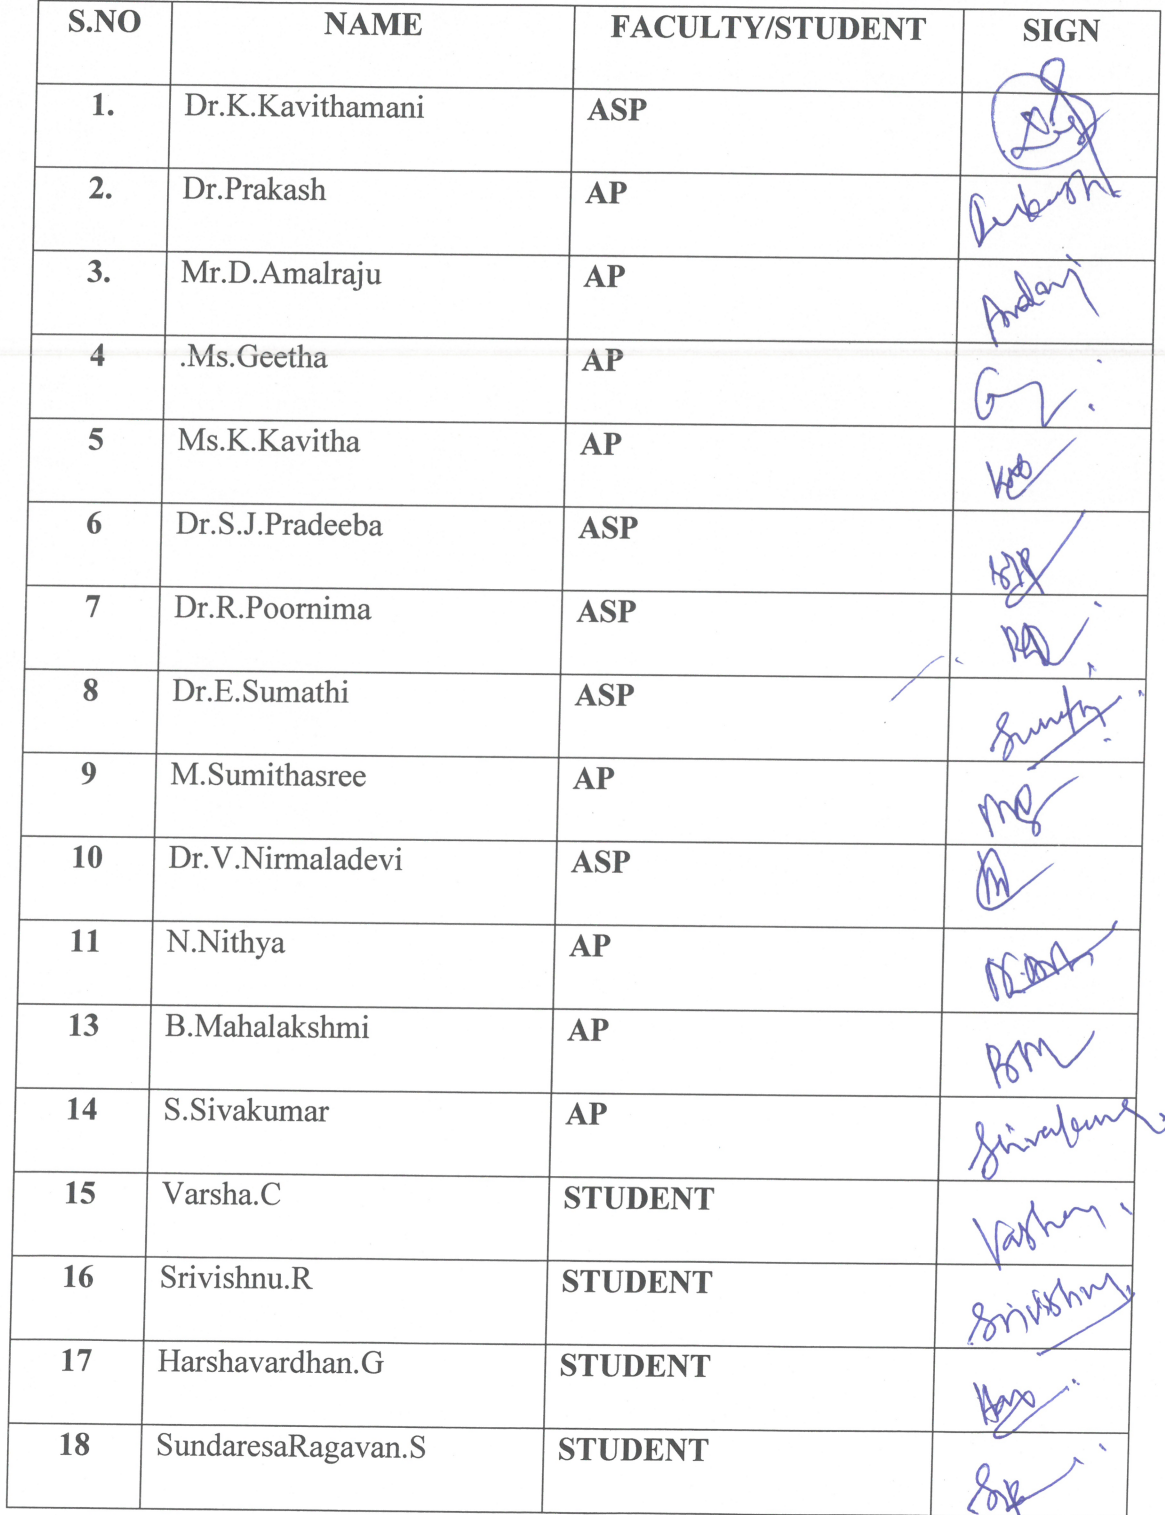 S.NO NAME FACULTY/STUDENT SIGN
1. Dr.K.Kavithamani ASP
2. Dr.Prakash AP
3. Mr.D.Amalraju AP
4 .Ms.Geetha AP
5 Ms.K.Kavitha AP
6 Dr.S.J.Pradeeba ASP
7 Dr.R.Poornima ASP
8 Dr.E.Sumathi ASP
9 M.Sumithasree AP
10 Dr.V.Nirmaladevi ASP
11 N.Nithya AP
13 B.Mahalakshmi AP
14 S.Sivakumar AP
15 Varsha.C STUDENT
16 Srivishnu.R STUDENT Srivishnu
17 Harshavardhan.G STUDENT
18 SundaresaRagavan.S STUDENT